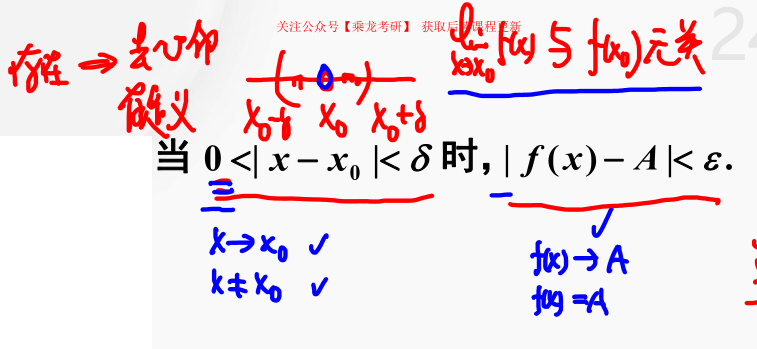 关注公众号【乘龙考研】 获取后续课程更新
存在 → 去心邻
有定义
lim x→x₀ f(x) 与 f(x₀) 无关
24
x₀-δ x₀ x₀+δ
当 0 <| x − x₀ |< δ 时, | f(x) − A |< ε.
x → x₀ ✓
x ≠ x₀ ✓
✓
f(x) → A
f(x) = A